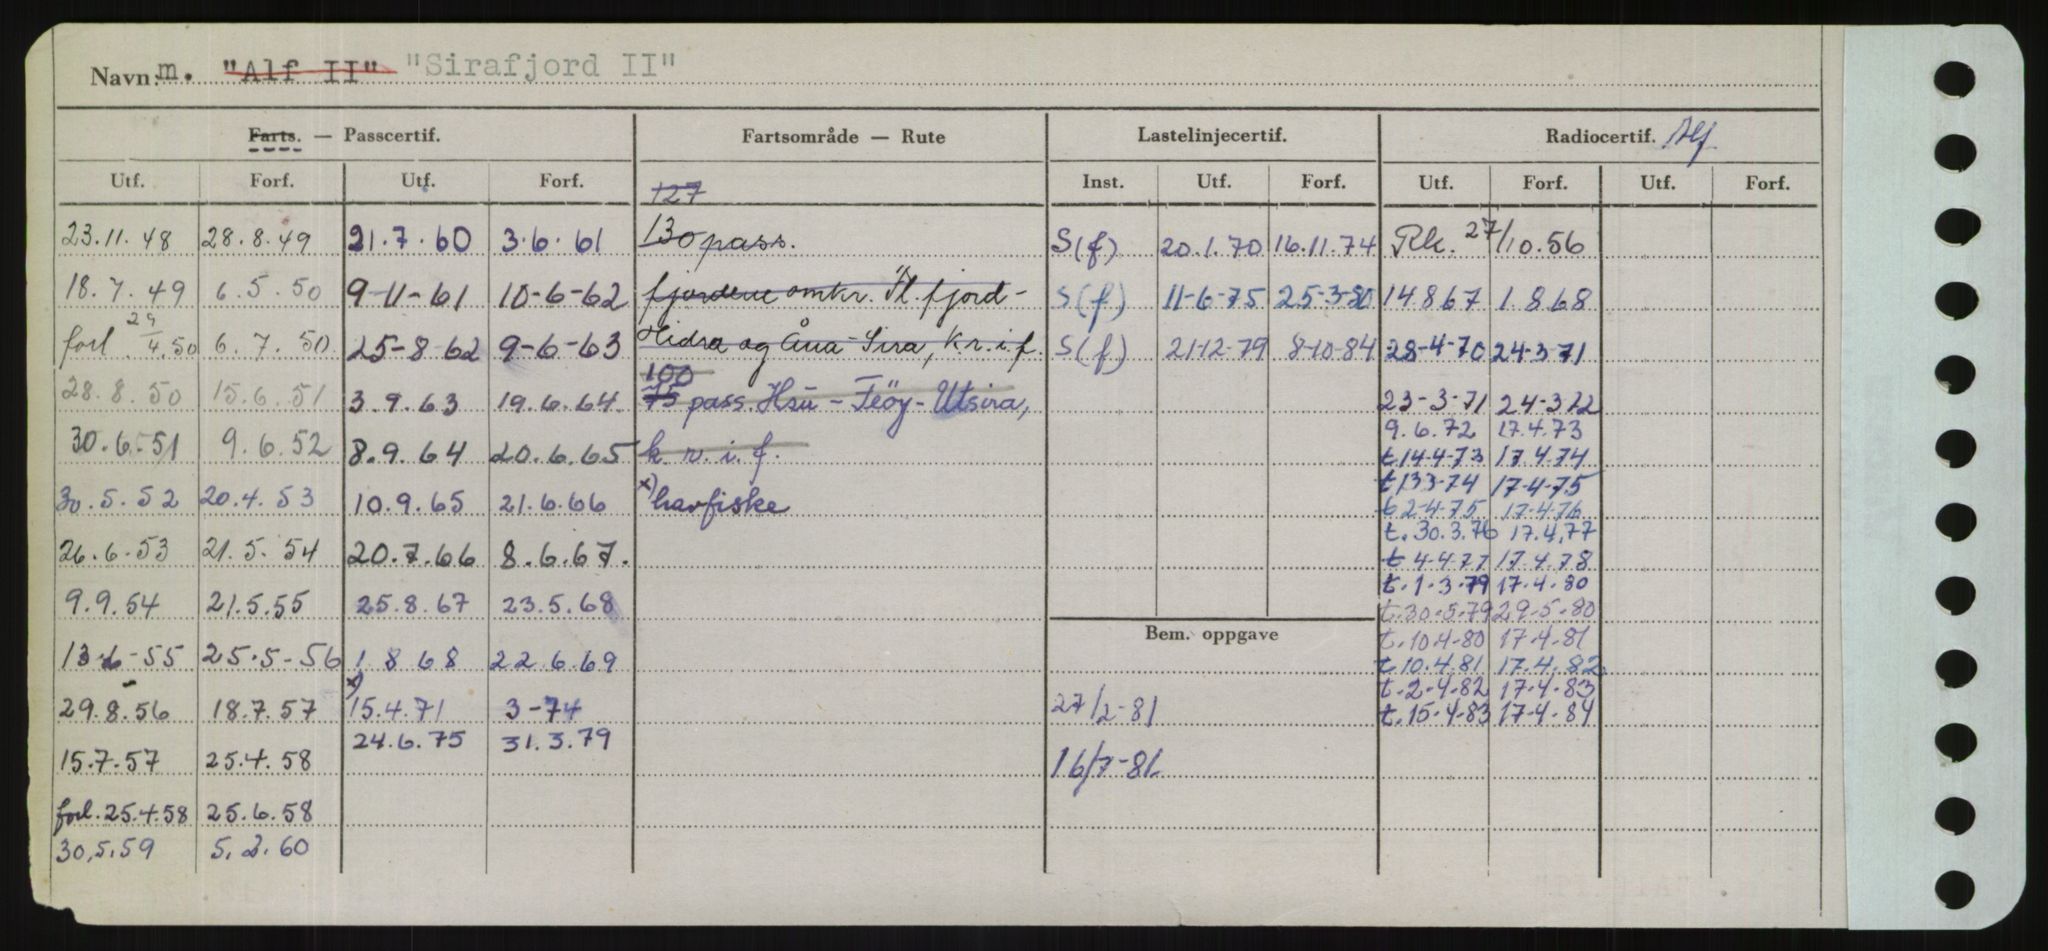 Navn: m. "Alf II" "Sirafjord II"
Farts. — Passcertif. Fartsområde — Rute Lastelinjecertif. Radiocertif. Alf
Utf. Forf. Utf. Forf. Inst. Utf. Forf. Utf. Forf. Utf. Forf.
127
23.11.48 28.8.49 21.7.60 3.6.61 130 pass. S(f) 20.1.70 16.11.74 Rk. 27/10.56
18.7.49 6.5.50 9-11-61 10-6-62 fjordene omkr. Fl.fjord- S(f) 11-6-75 25-3-80 14.8 67 1.8 68
forl. 29/4.50 6.7.50 25-8 62 9-6-63 Hidra og Åna-Sira, k.r.i.f. S(f) 21-12-79 8-10-84 28-4-70 24-3-71
100
28.8.50 15.6.51 3.9.63 19.6.64 75 pass. Hsu - Feöy - Utsira, 23-3-71 24-3 72
9.6.72 17.4.73
30.6.51 9.6.52 8.9.64 20.6.65 k.r.i.f. t 14-4-73 17.4.74
t 13 3-74 17-4-75
30.5.52 20.4.53 10.9.65 21.6.66 x) havfiske t 2-4-75 17-4-76
t. 30.3.76 17.4.77
26.6.53 21.5.54 20.7.66 8.6.67. t 4-4-77 17.4.78
t. 1-3-79 17-4-80
9.9.54 21.5.55 25.8.67 23.5.68 t. 30-5-79 29-5-80
Bem. oppgave t. 10.4-80 17-4-81
13-6-55 25.5-56 1 8 68 22.6.69 t. 10.4.81 17.4.82
x) t. 2-4-82 17-4-83
29.8.56 18.7.57 15.4.71 3-74 27/2-81 t. 15-4-83 17-4-84
24.6.75 31.3.79
15.7.57 25.4.58 16/7-81
forl. 25.4.58 25.6.58
30.5.59 5.2.60